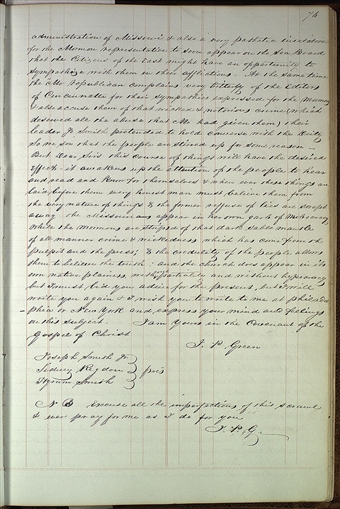 74
administration of Missouri & also a very pathetic invitation
for the Mormon representation to soon appear on the Sea Board
that the Citizens of the East might have an opportunity to
sympathise with them in their afflictions. At the same time
the Mo. Republican complains very bitterly of the Editors
of Cincinnatti for their sympathies expressed for the Mormons
& also accuses them of that wicked & notorious crime, (which
deserved all the abuse that Mo had given them) their
leader J. Smith pretended to hold Converse with the Deity
do no so that the people are stired up for some reason —
But Dear Sirs this course of things will have the desired
effect it awakens up the attention of the people to hear
and read and Know for themselves & when ever these things are
laid before them every honest man must believe them from
the very nature of things & the former refuge of lies are swept
away. The Missourians appear in their own garb of
while the Mormons are striped of that dark sable mantle
of all manner crime & wickedness which has came from the
pulpit and the press; & the credulity of the people, allow
them to believe the truth: and the church does appear in its
own native plainess without partiality and without hypocracy
but I must bid you adieu for the present, but I will
write you again & I wish you to write to me at Philadel
phia or New York and express your mind and feelings
on this subject. I am yours in the Covenant of the
Gospel of Christ
J. P. Green
Joseph Smith Jr
Sidney Rigdon
Hyrum Smith
N B excuse all the imperfections of this scrawl
& ever pray for me as I do for you
J. P. G.